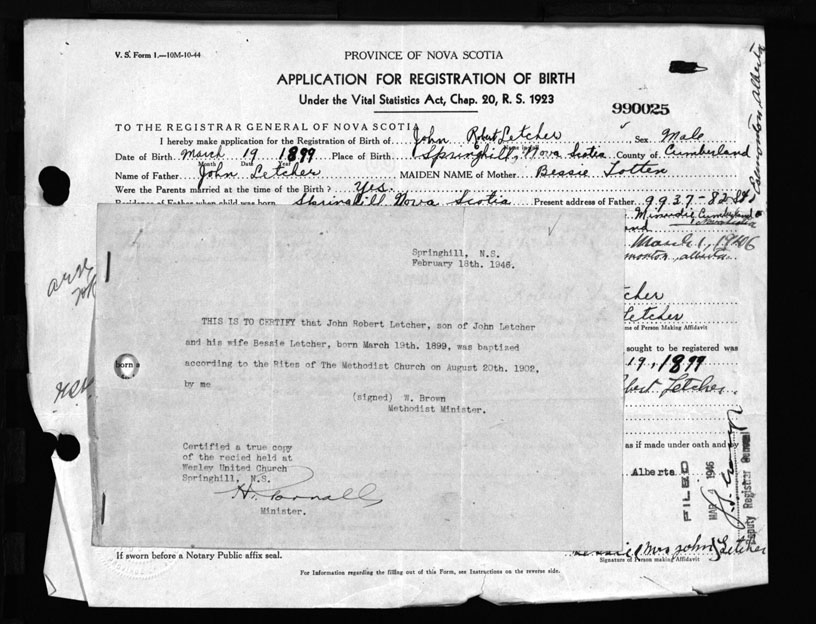 V. S. Form 1.—10M-10-44
PROVINCE OF NOVA SCOTIA
APPLICATION FOR REGISTRATION OF BIRTH
Under the Vital Statistics Act, Chap. 20, R. S. 1923
990025
TO THE REGISTRAR GENERAL OF NOVA SCOTIA
I hereby make application for the Registration of Birth of John Robert Letcher Sex Male
Date of Birth March 19 1899 Place of Birth Springhill, Nova Scotia County of Cumberland
Month Date Year
Name of Father John Letcher MAIDEN NAME of Mother Bessie Totten
Were the Parents married at the time of the Birth ? Yes.
Residence of Father when child was born Springhill Nova Scotia Present address of Father 9937-82 St
Edmonton, Alberta
Minudie Cumberland
March 1, 1946
Edmonton, Alberta
Springhill, N.S.
February 18th. 1946.
THIS IS TO CERTIFY that John Robert Letcher, son of John Letcher
and his wife Bessie Letcher, born March 19th. 1899, was baptized
according to the Rites of The Methodist Church on August 20th. 1902,
by me
(signed) W. Brown
Methodist Minister.
Certified a true copy
of the recied held at
Wesley United Church
Springhill, N.S.
Minister.
born a
Letcher
Letcher
me of Person Making Affidavit
sought to be registered was
19, 1899
Robert Letcher
as if made under oath and by
Alberta
FILED
MAR 1946
Deputy Registrar General
Mrs John Letcher
Signature of Person making Affidavit
If sworn before a Notary Public affix seal.
For Information regarding the filling out of this Form, see Instructions on the reverse side.